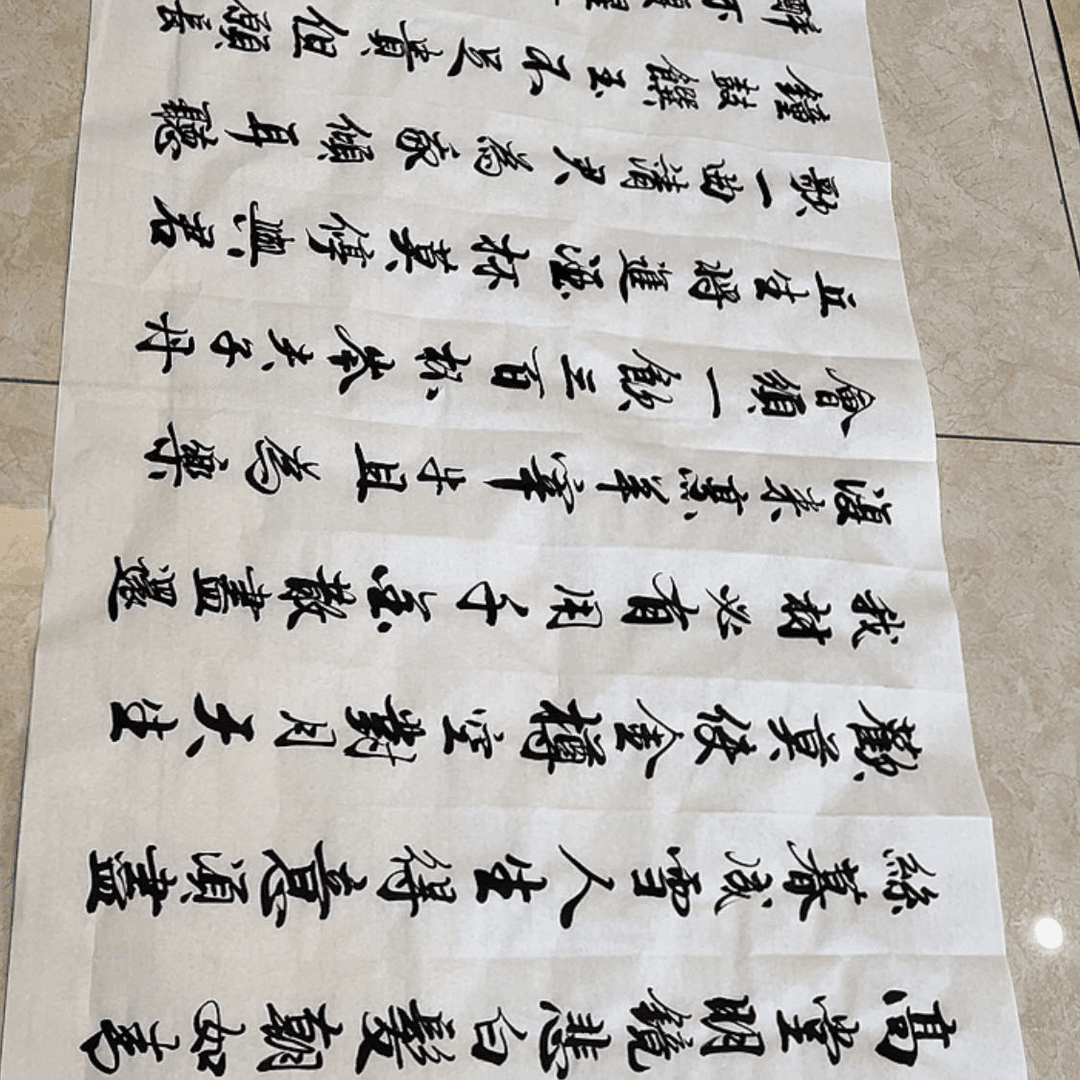 高堂明鏡悲白髮朝如青
絲暮成雪人生得意須盡
歡莫使金樽空對月天生
我材必有用千金散盡還
復來烹羊宰牛且為樂
會須一飲三百杯岑夫子丹
丘生將進酒杯莫停與君
歌一曲請君為我傾耳聽
鐘鼓饌玉不足貴但願長
醉不復醒